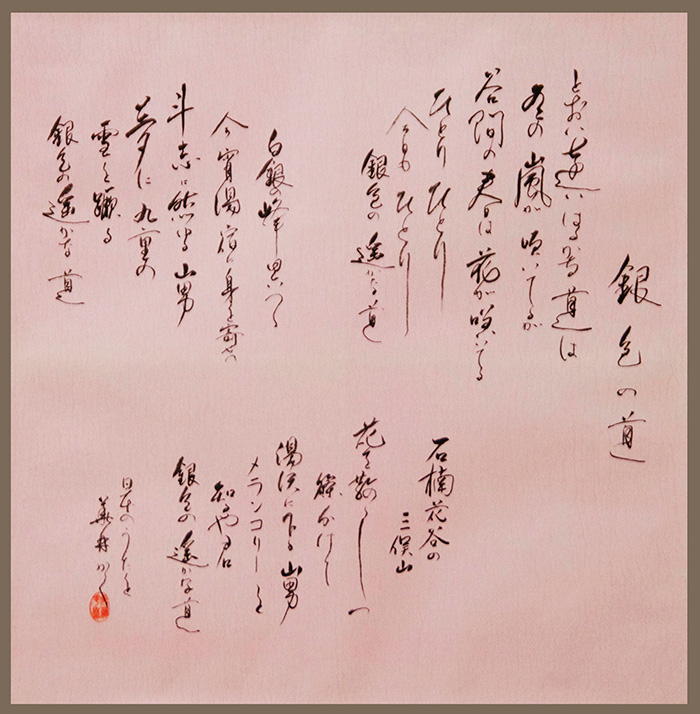 銀色の道
とおい遠いはるかな道は
冬の嵐が吹いてるが
谷間の春は花が咲いてる
ひとりひとり
今日もひとり
銀色の遥かな道
白銀の峰思いつつ
今宵湯宿に身を寄せつ
斗志に燃ゆる山男
夢に九重の
雪を蹴る
銀色の遥かな道
石楠花谷の
三俣山
花を散らしつ
篠分けて
湯沢に下る山男
メランコリーを
知るや君
銀色の遥かな道
日本のうたを